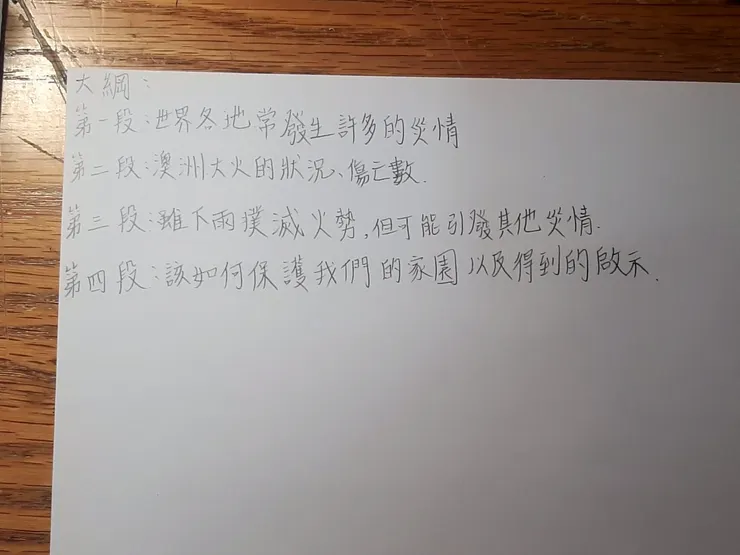 大綱：
第一段：世界各地常發生許多的災情
第二段：澳洲大火的狀況、傷亡數.
第三段：雖下雨撲滅火勢,但可能引發其他災情.
第四段：該如何保護我們的家園以及得到的啟示.